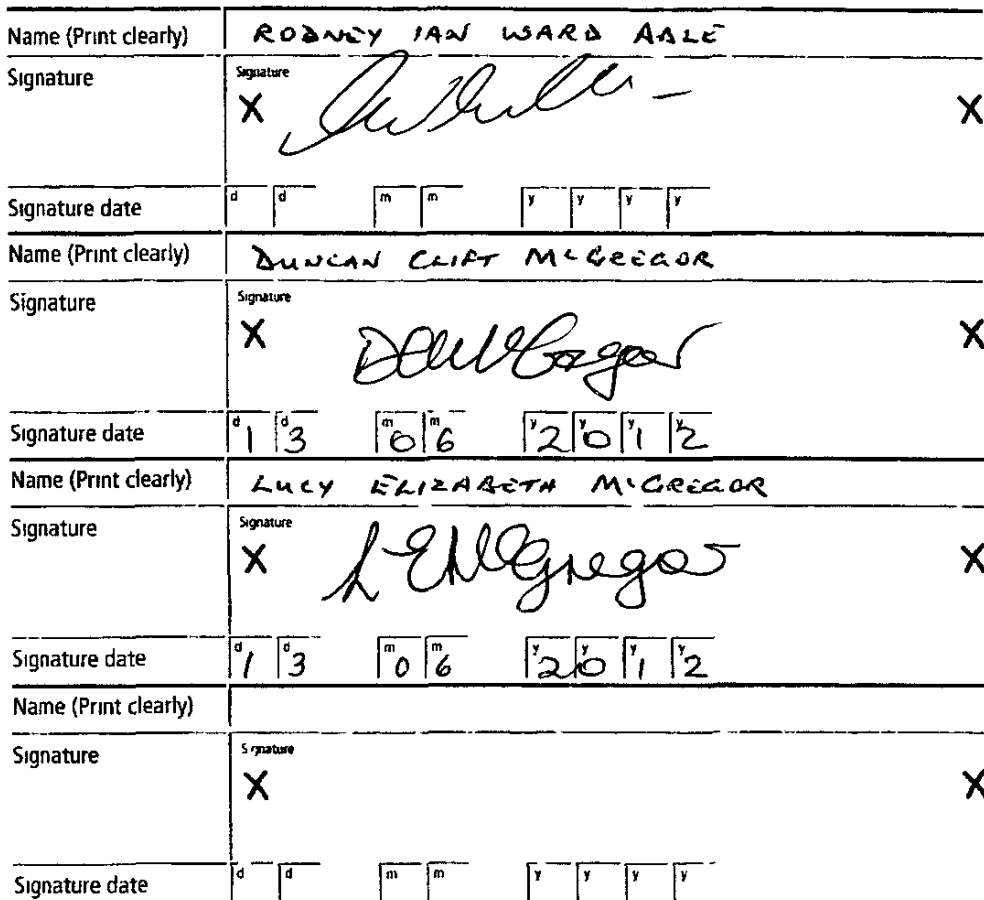 Name (Print clearly) RODNEY IAN WARD
Signature Signature
X X
Signature date d d m m y y y y
Name (Print clearly) DUNCAN CLIFT McGREGOR
Signature Signature
X DCMcGregor X
Signature date d1 d3 m0 m6 y2 y0 y1 y2
Name (Print clearly) LUCY ELIZABETH McGREGOR
Signature Signature
X L E McGregor X
Signature date d1 d3 m0 m6 y2 y0 y1 y2
Name (Print clearly)
Signature Signature
X X
Signature date d d m m y y y y